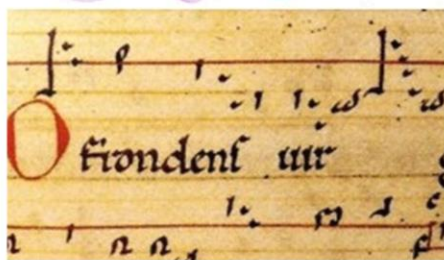 O frondens uir